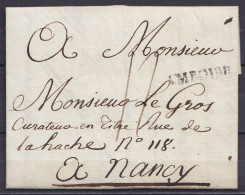 A Monsieur
AMBOISE
Monsieur Le Gros
Curateur en Titre Rue de
la hache N° 118.
a Nancy